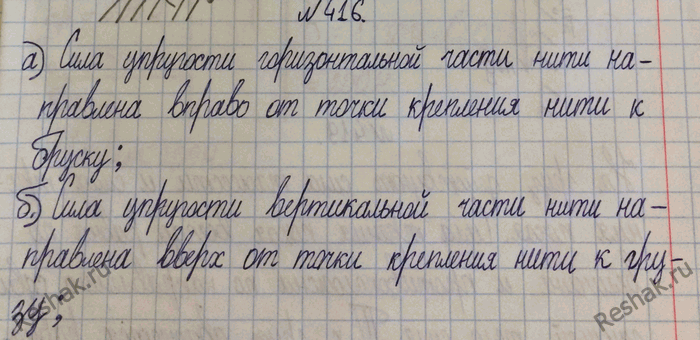 №416.
а) Сила упругости горизонтальной части нити на-
правлена вправо от точки крепления нити к
бруску;
б) Сила упругости вертикальной части нити на-
правлена вверх от точки крепления нити к гру-
зу;
Reshak.ru
Reshak.ru